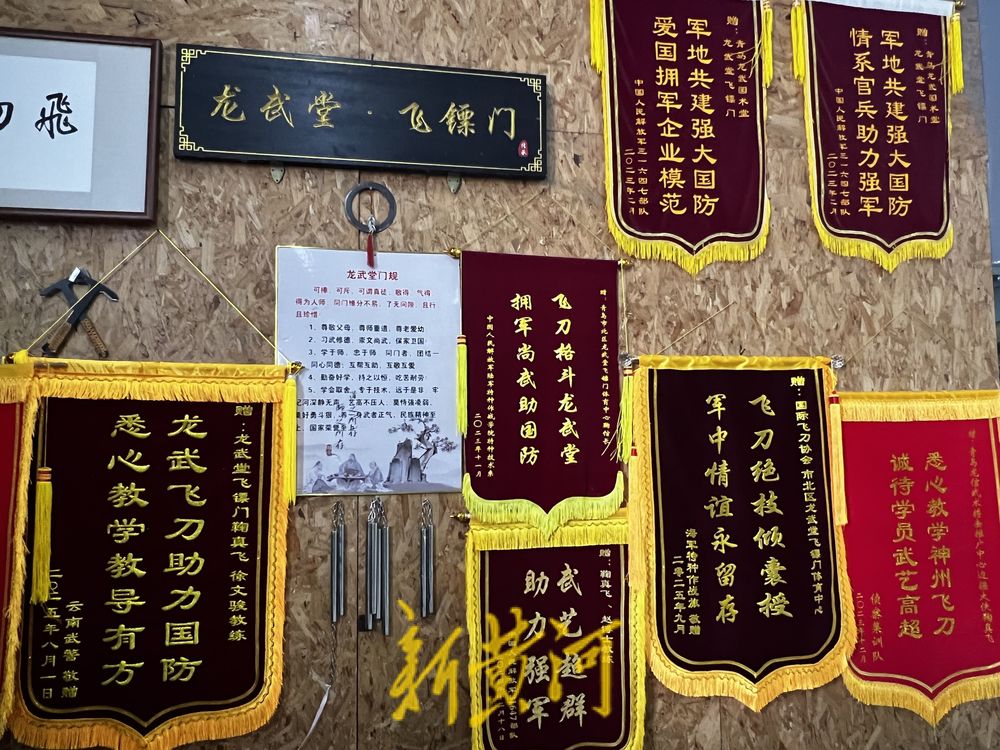 飞
龙武堂·飞镖门
赠：青岛龙武国术堂
龙武堂飞镖门
军地共建强大国防
爱国拥军企业模范
中国人民解放军三一六四七部队
二〇二三年二月
赠：青岛龙武国术堂
龙武堂飞镖门
军地共建强大国防
情系官兵助力强军
中国人民解放军三一六四七部队
二〇二三年二月
龙武堂门规
得为人师，同门缘分不易，了无间隙，且行
且珍惜
1、尊敬父母，尊师重道，尊老爱幼
2、习武修德，崇文尚武，保家卫国
3、学于师，忠于师，同门者，团结一
同心同德；互帮互助，互敬互爱
4、勤奋好学，持之以恒，吃苦耐劳
5、学会取舍，专于技术，远于是非
飞刀格斗龙武堂
拥军尚武助国防
中国人民解放军陆军特种作战学院特种技术系
二〇二三年十一月
赠：龙武堂飞镖门鞠真飞 徐文骏教练
龙武飞刀助力国防
悉心教学教导有方
云南武警 敬赠
二〇二五年八月一日
赠：鞠真飞、
武艺超群
助力强军
赠：国际飞刀协会市北区龙武堂飞镖门体育中心
飞刀绝技倾囊授
军中情谊永留存
海军特种作战集 敬赠
二零二五年九月
悉心教学神州飞刀
诚待学员武艺高超
侦察集训队
二〇二三年十二月
新黄河